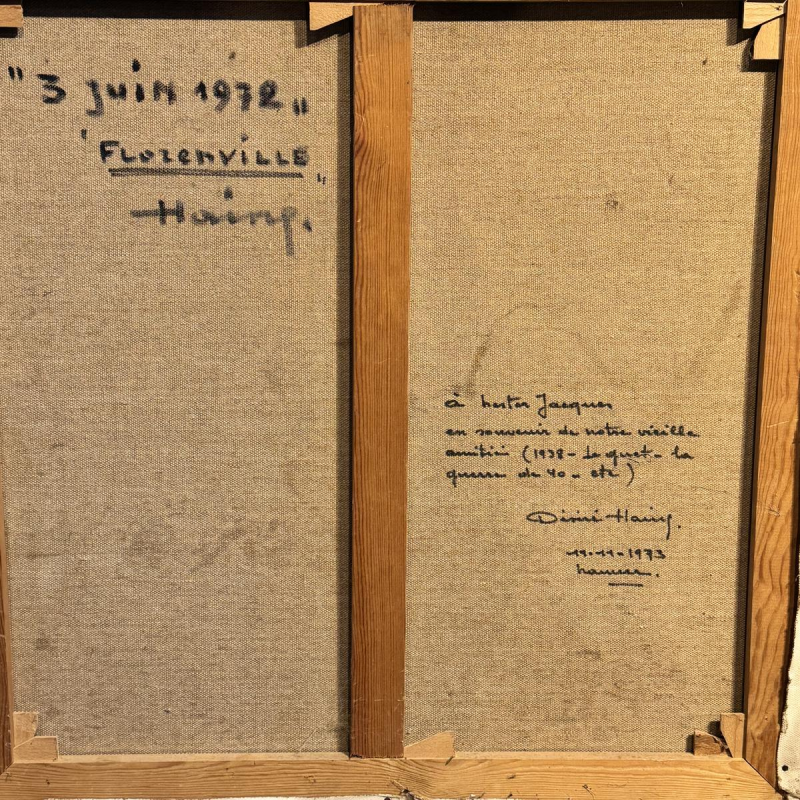 "3 juin 1972"
"FLorenviLLE"
Haing.
à nestor Jacques
en souvenir de notre vieille
amitié (1938 - Le guet - la
guerre de 40 - etc)
Désiré Haing.
11-11-1973
namur.